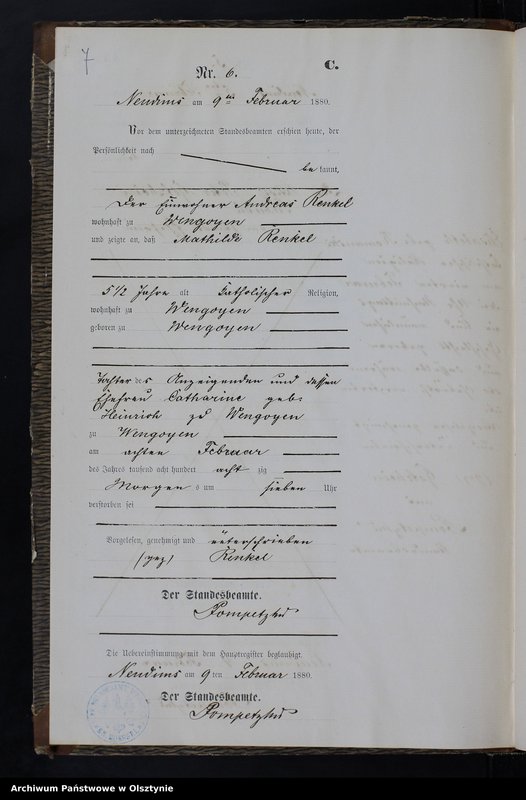 7
C.
Nr. 6.
Nendims am 9ten Februar 1880.
Vor dem unterzeichneten Standesbeamten erschien heute, der
Persönlichkeit nach
be kannt,
Der Einwohner Andreas Renkel
wohnhaft zu Wengoyen
und zeigte an, daß Mathilde Renkel
5 1/2 Jahre alt katholischer Religion,
wohnhaft zu Wengoyen
geboren zu Wengoyen
Tochter des Anzeigenden und dessen
Ehefrau Catharine geb:
Heinrich zu Wengoyen
zu Wengoyen
am achten Februar
des Jahres tausend acht hundert acht zig
Morgens um sieben Uhr
verstorben sei
Vorgelesen, genehmigt und unterschrieben
(gez) Renkel
Der Standesbeamte.
Die Uebereinstimmung mit dem Hauptregister beglaubigt.
Nendims am 9ten Februar 1880.
Der Standesbeamte.
Archiwum Państwowe w Olsztynie